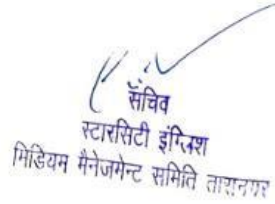 सचिव
स्टारसिटी इंग्लिश
मिडियम मैनेजमेन्ट समिति तारानगर